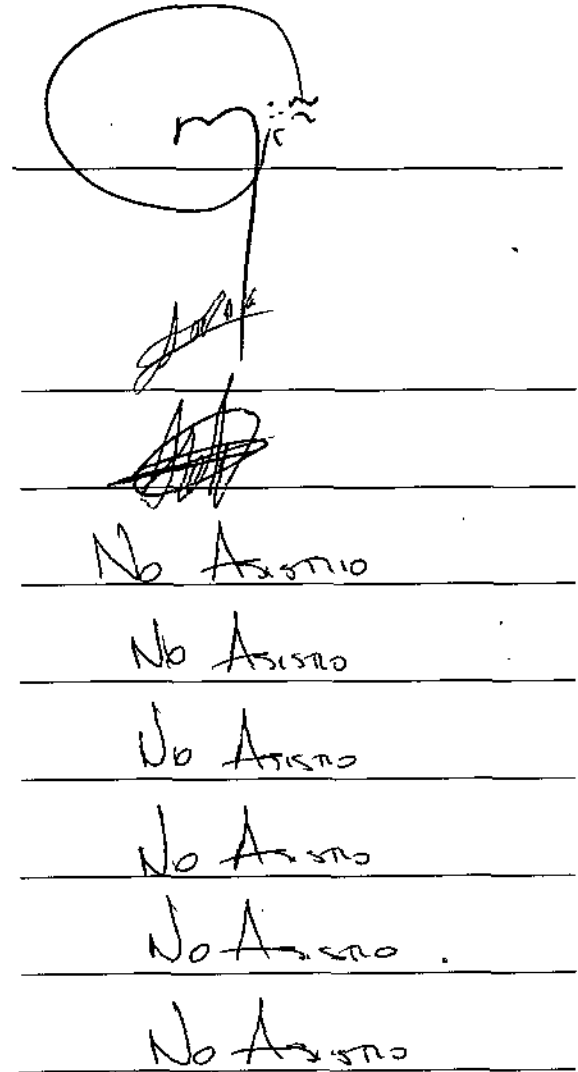 No Asistio
No Asistio
No Asistio
No Asistio
No Asistio.
No Asistio